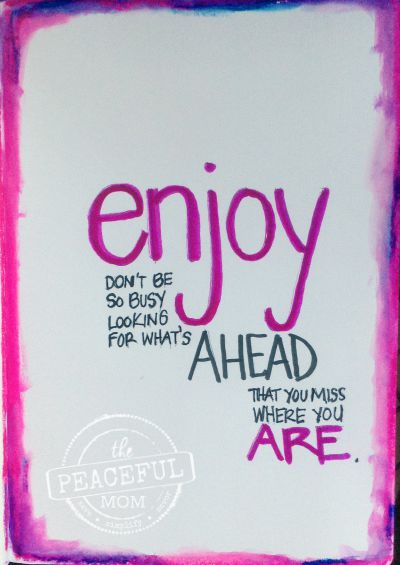 enjoy
DON'T BE
SO BUSY
LOOKING
FOR WHAT'S
AHEAD
THAT YOU MISS
WHERE YOU
ARE.
the
PEACEFUL
MOM
save simplify savor